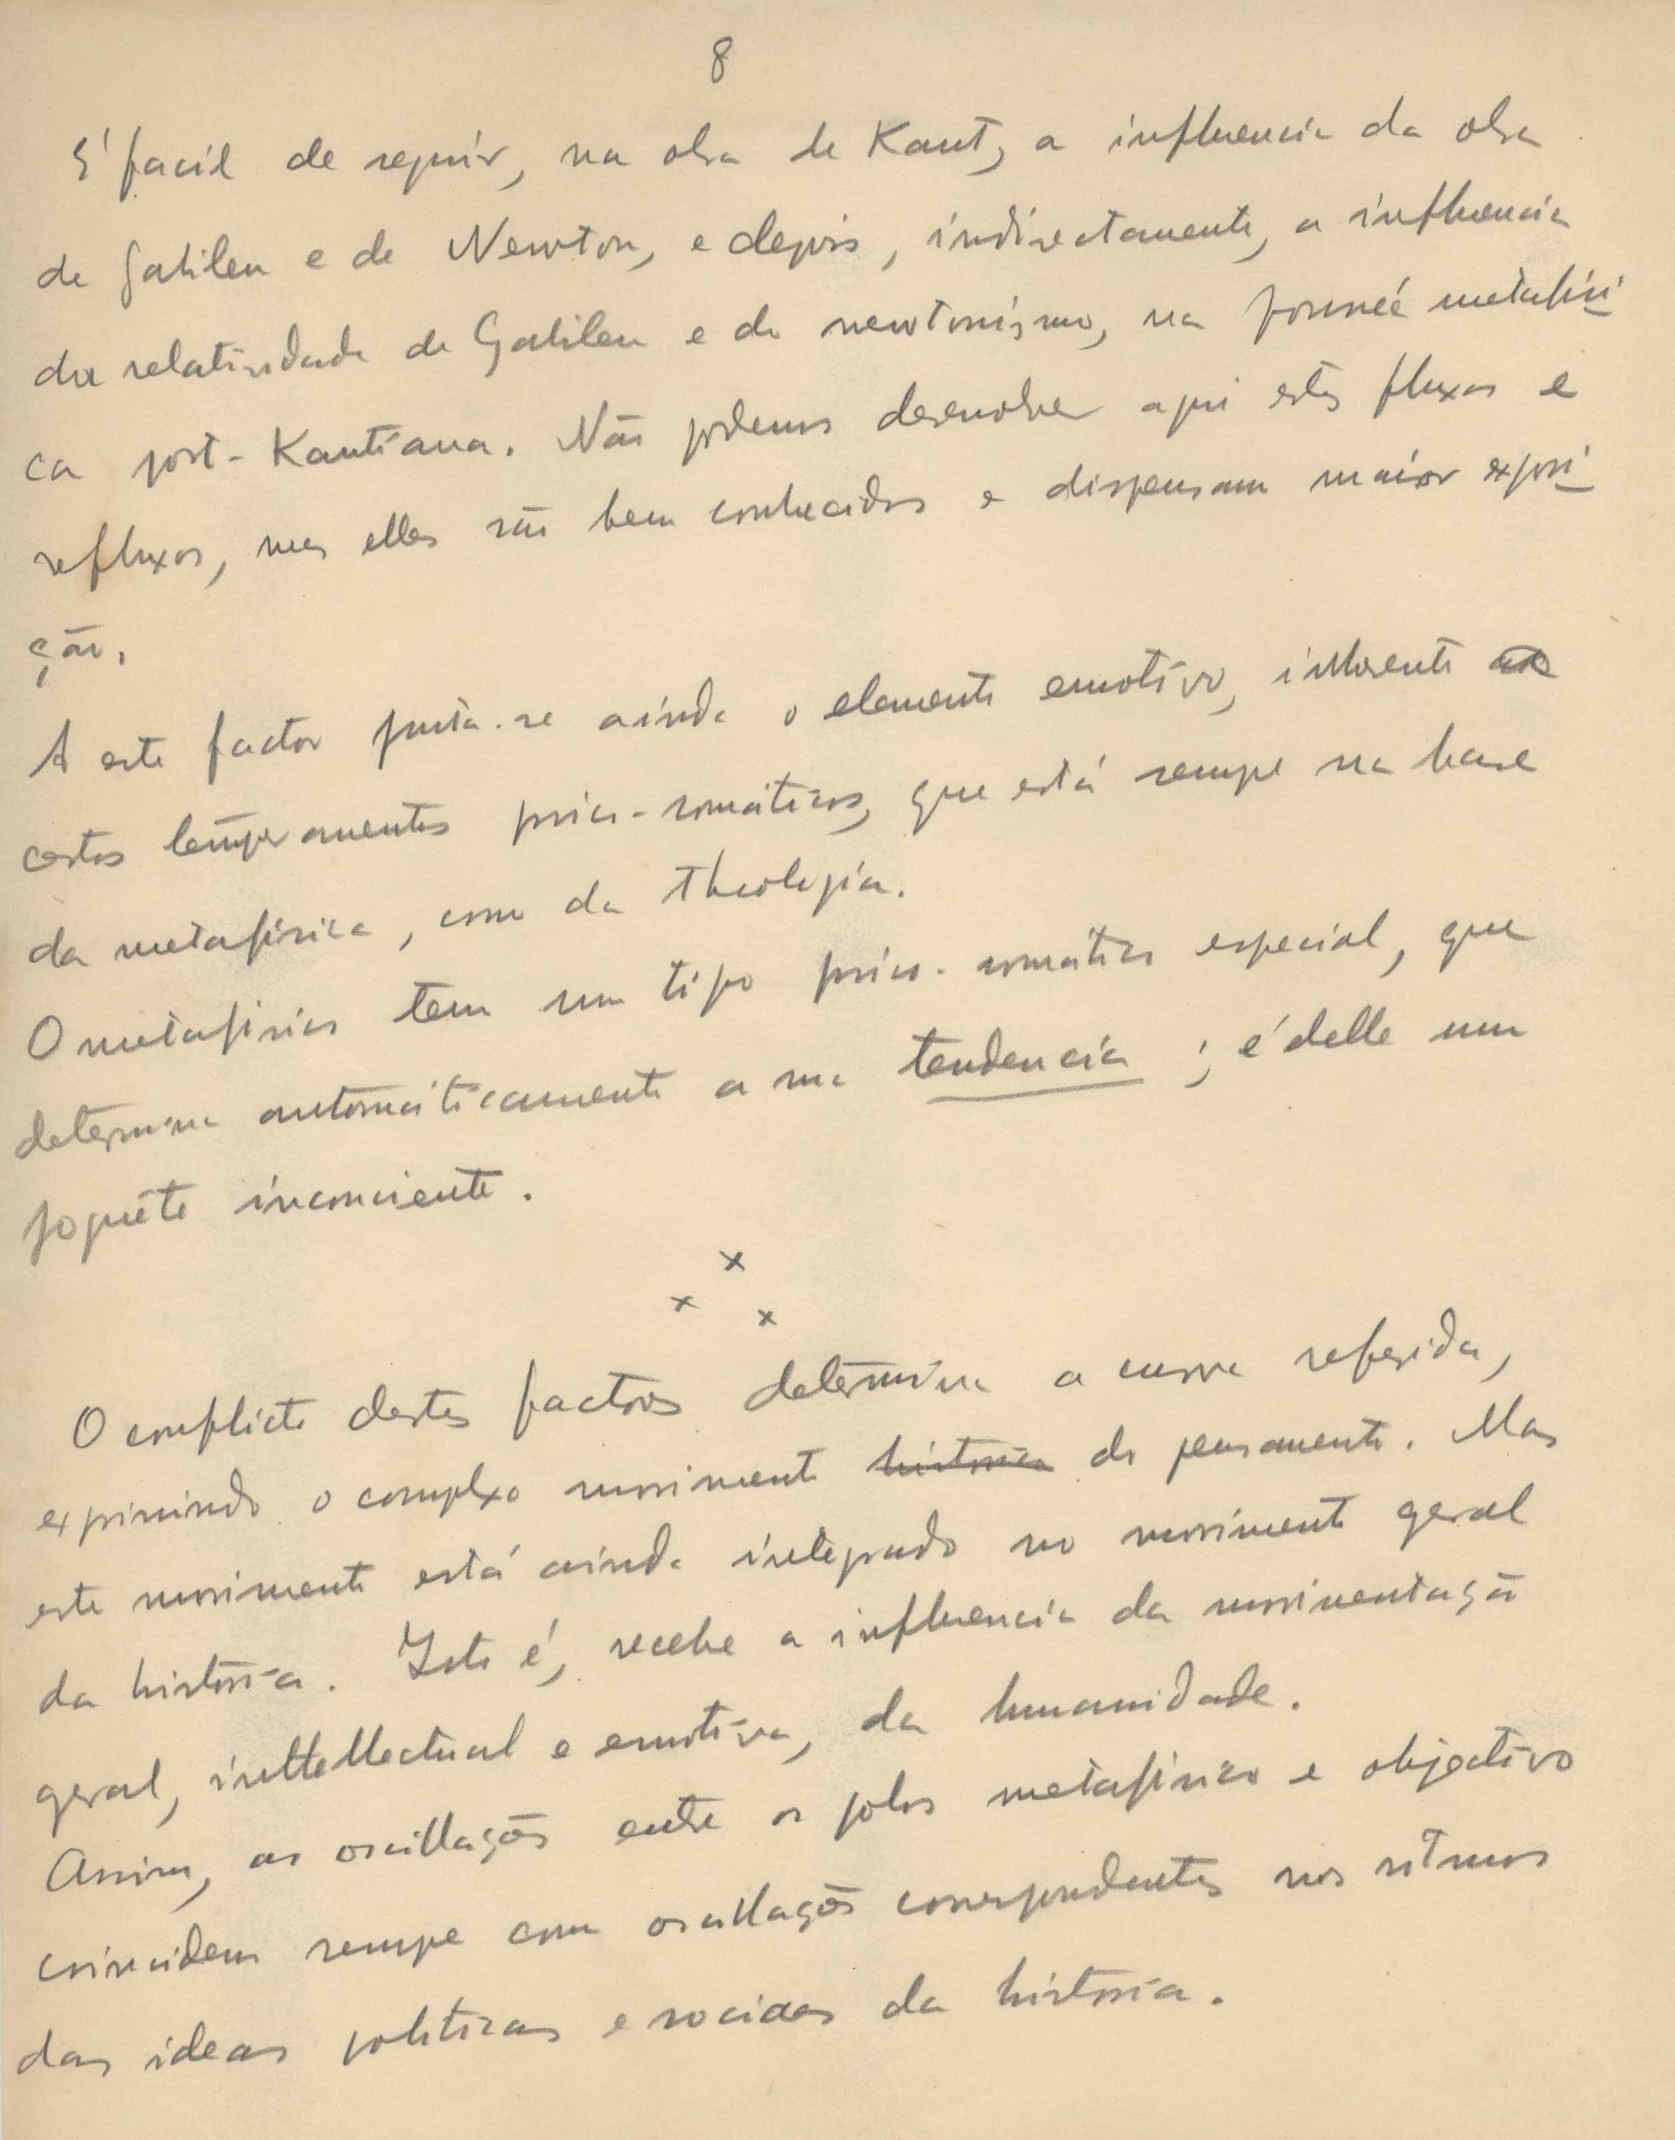 8
É facil de seguir, na obra de Kant, a influencia da obra
de Galileu e de Newton, e depois, indirectamente, a influencia
da relatividade de Galileu e do newtonismo, na poussée metafisi
ca post-Kantiana. Não podemos desenvolver aqui estes fluxos e
refluxos, mas elles são bem conhecidos e dispensam maior exposi
ção.
A este factor junta-se ainda o elemento emotivo, inherente
certos temperamentos psico-somáticos, que está sempre na base
da metafisica, como da theologia.
O metafisico tem um tipo psico-somático especial, que
determina automáticamente a sua tendencia; é delle um
joguéte inconsciente.
x
x x
O conflicto destes factores determina a curva referida,
exprimindo o complexo movimento historico do pensamento. Mas
este movimento está ainda integrado no movimento geral
da história. Isto é, recebe a influencia da movimentação
geral, intellectual e emotiva, da humanidade.
Assim, as oscillações entre os polos metafisico e objectivo
coincidem sempre com oscillações correspondentes nos ritmos
das ideas politicas e sociaes da história.